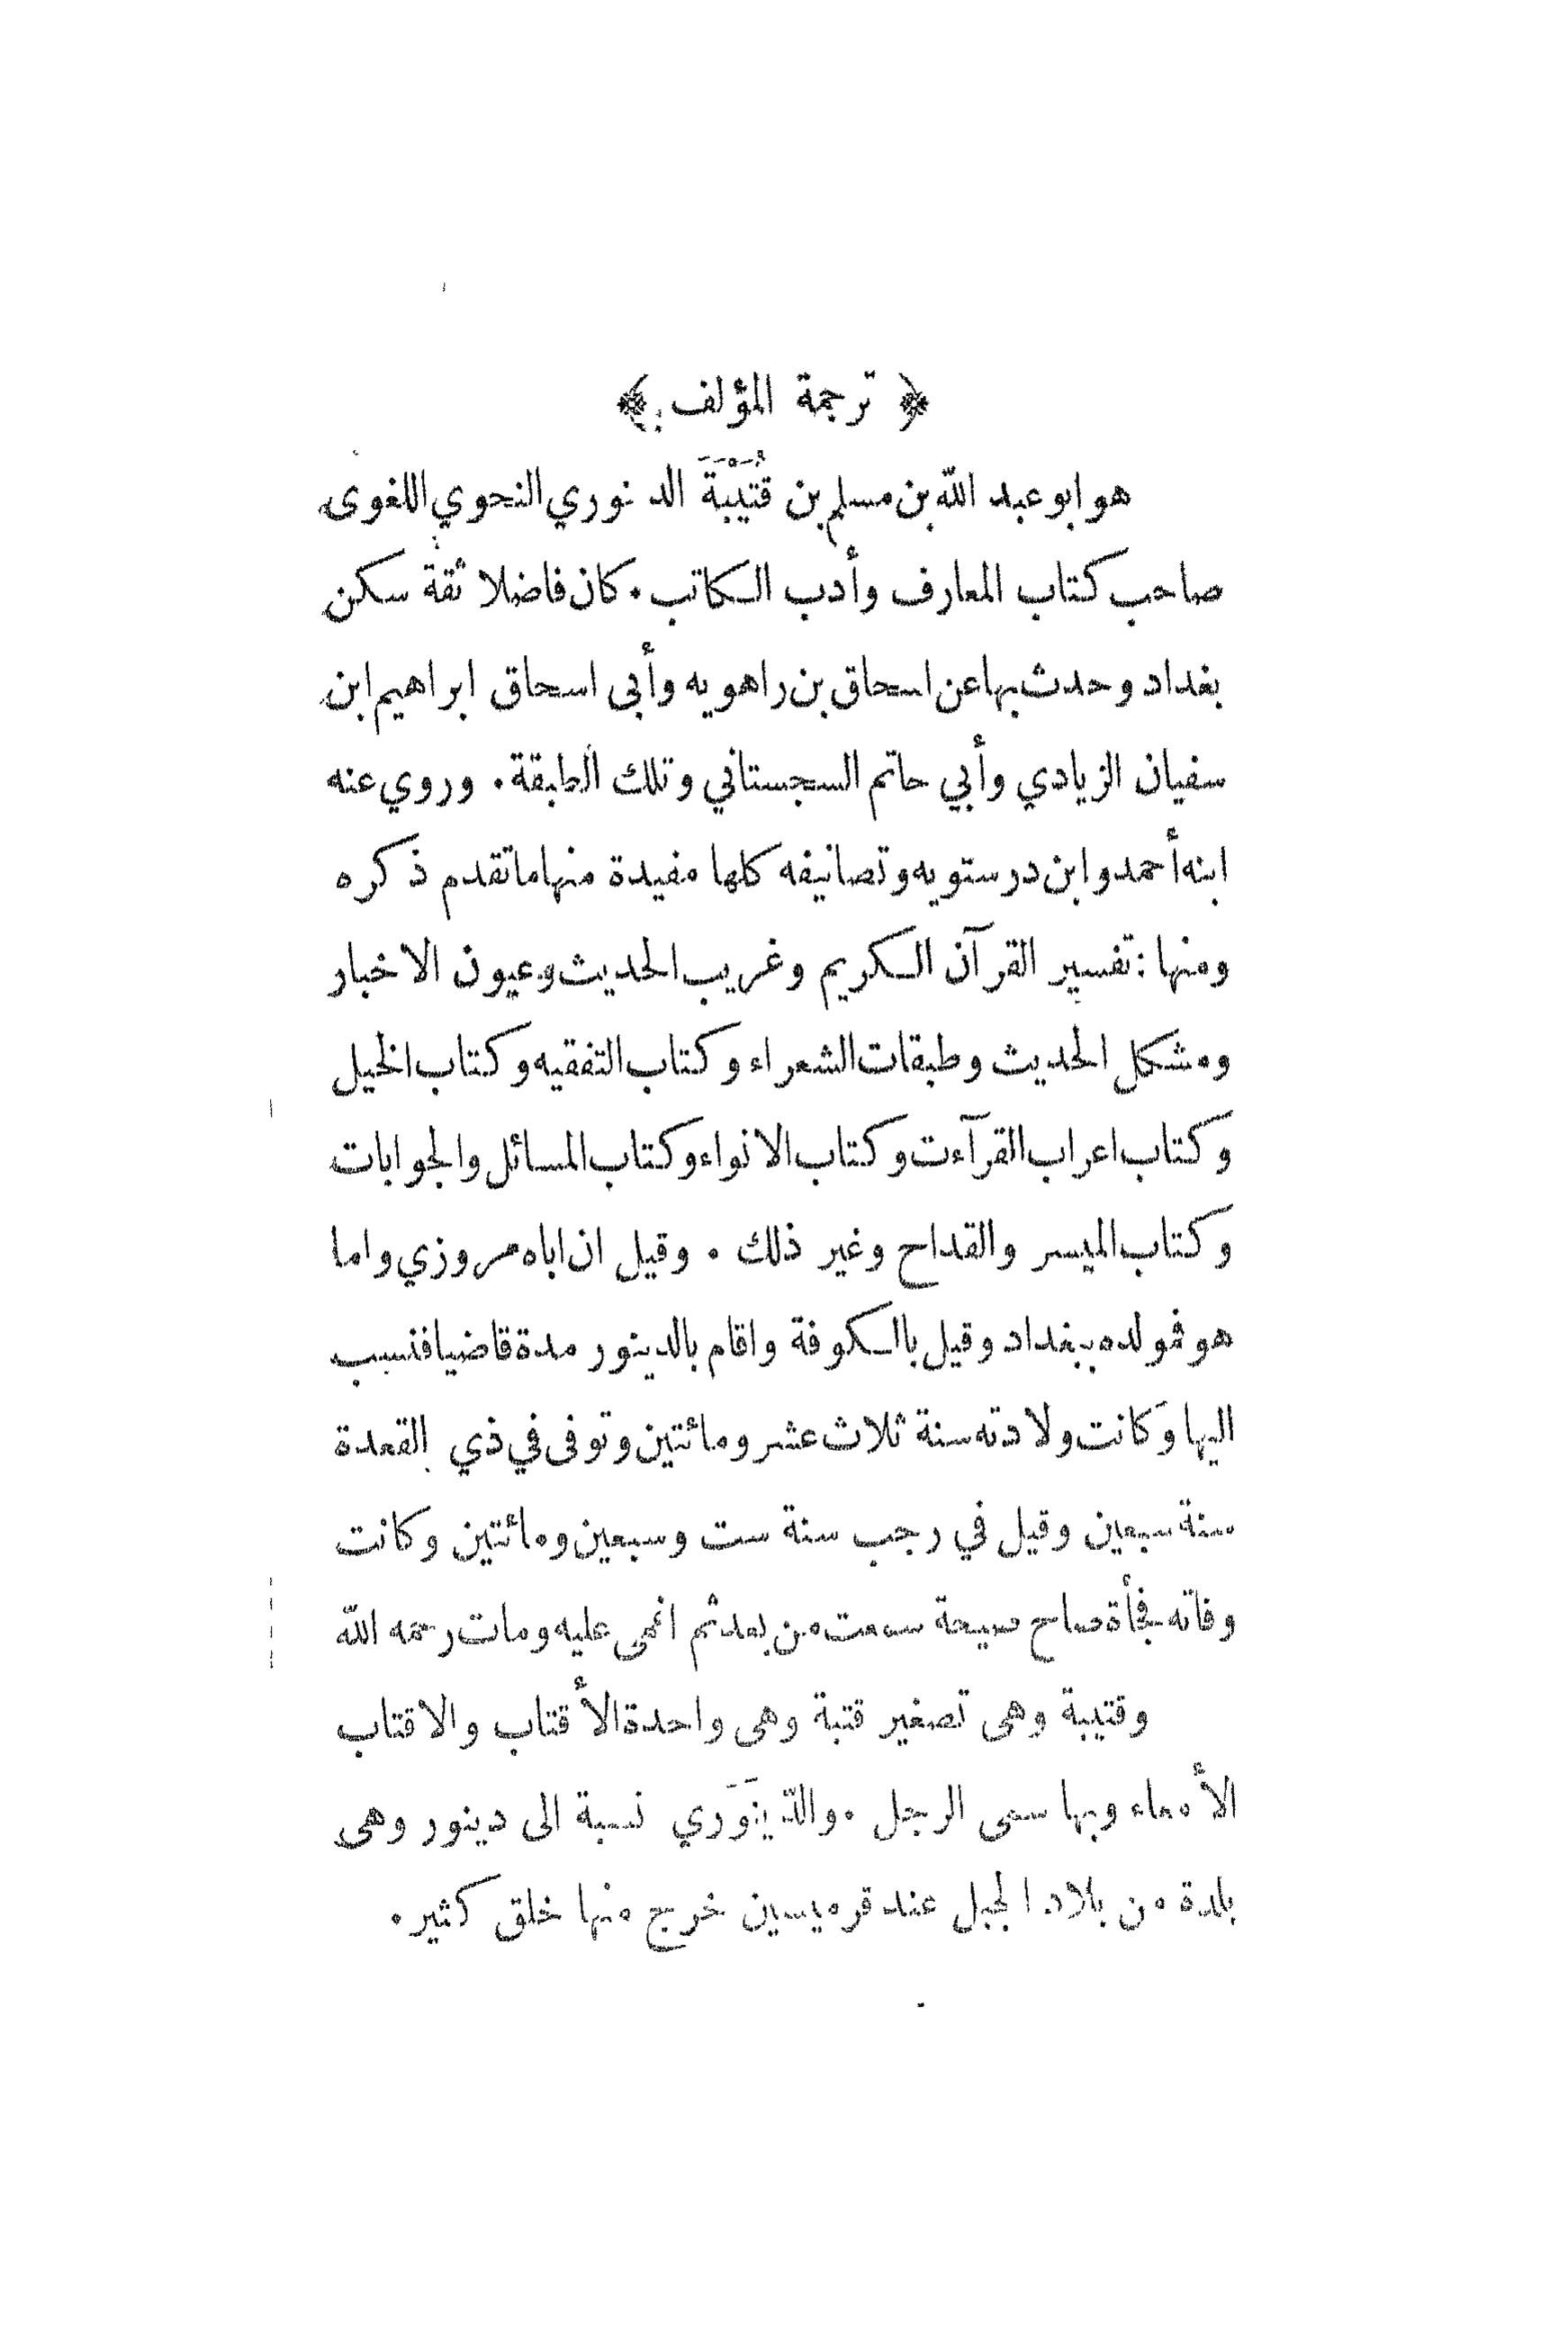 ﴿ ترجمة المؤلف ﴾
هو ابو عبد الله بن مسلم بن قُتَيْبَةَ الد نوري النحوي اللغوى
صاحب كتاب المعارف وأدب الكاتب. كان فاضلا ثقة سكن
بغداد وحدث بها عن اسحاق بن راهويه وأبى اسحاق ابراهيم ابن
سفيان الزيادي وأبي حاتم السجستاني وتلك الطبقة. وروي عنه
ابنه أحمد وابن درستويه وتصانيفه كلها مفيدة منها ما تقدم ذكره
ومنها: تفسير القرآن الكريم وغريب الحديث وعيون الاخبار
ومشكل الحديث وطبقات الشعراء وكتاب التفقيه وكتاب الخيل
وكتاب اعراب القرآءت وكتاب الانواء وكتاب المسائل والجوابات
وكتاب الميسر والقداح وغير ذلك. وقيل ان اباه مروزي واما
هو فمولده ببغداد وقيل بالكوفة واقام بالدينور مدة قاضيا فنسب
اليها وَكانت ولادته سنة ثلاث عشر ومائتين وتوفى في ذي القعدة
سنة سبعين وقيل في رجب سنة ست وسبعين ومائتين وكانت
وفاته فجأة صاح صيحة سمعت من بعد ثم اغمى عليه ومات رحمه الله
وقتيبة وهى تصغير قتبة وهى واحدة الأقتاب والاقتاب
الأمعاء وبها سمى الرجل. والدّينَوَري نسبة الى دينور وهى
بلدة من بلاد الجبل عند قرميسين خرج منها خلق كثير.